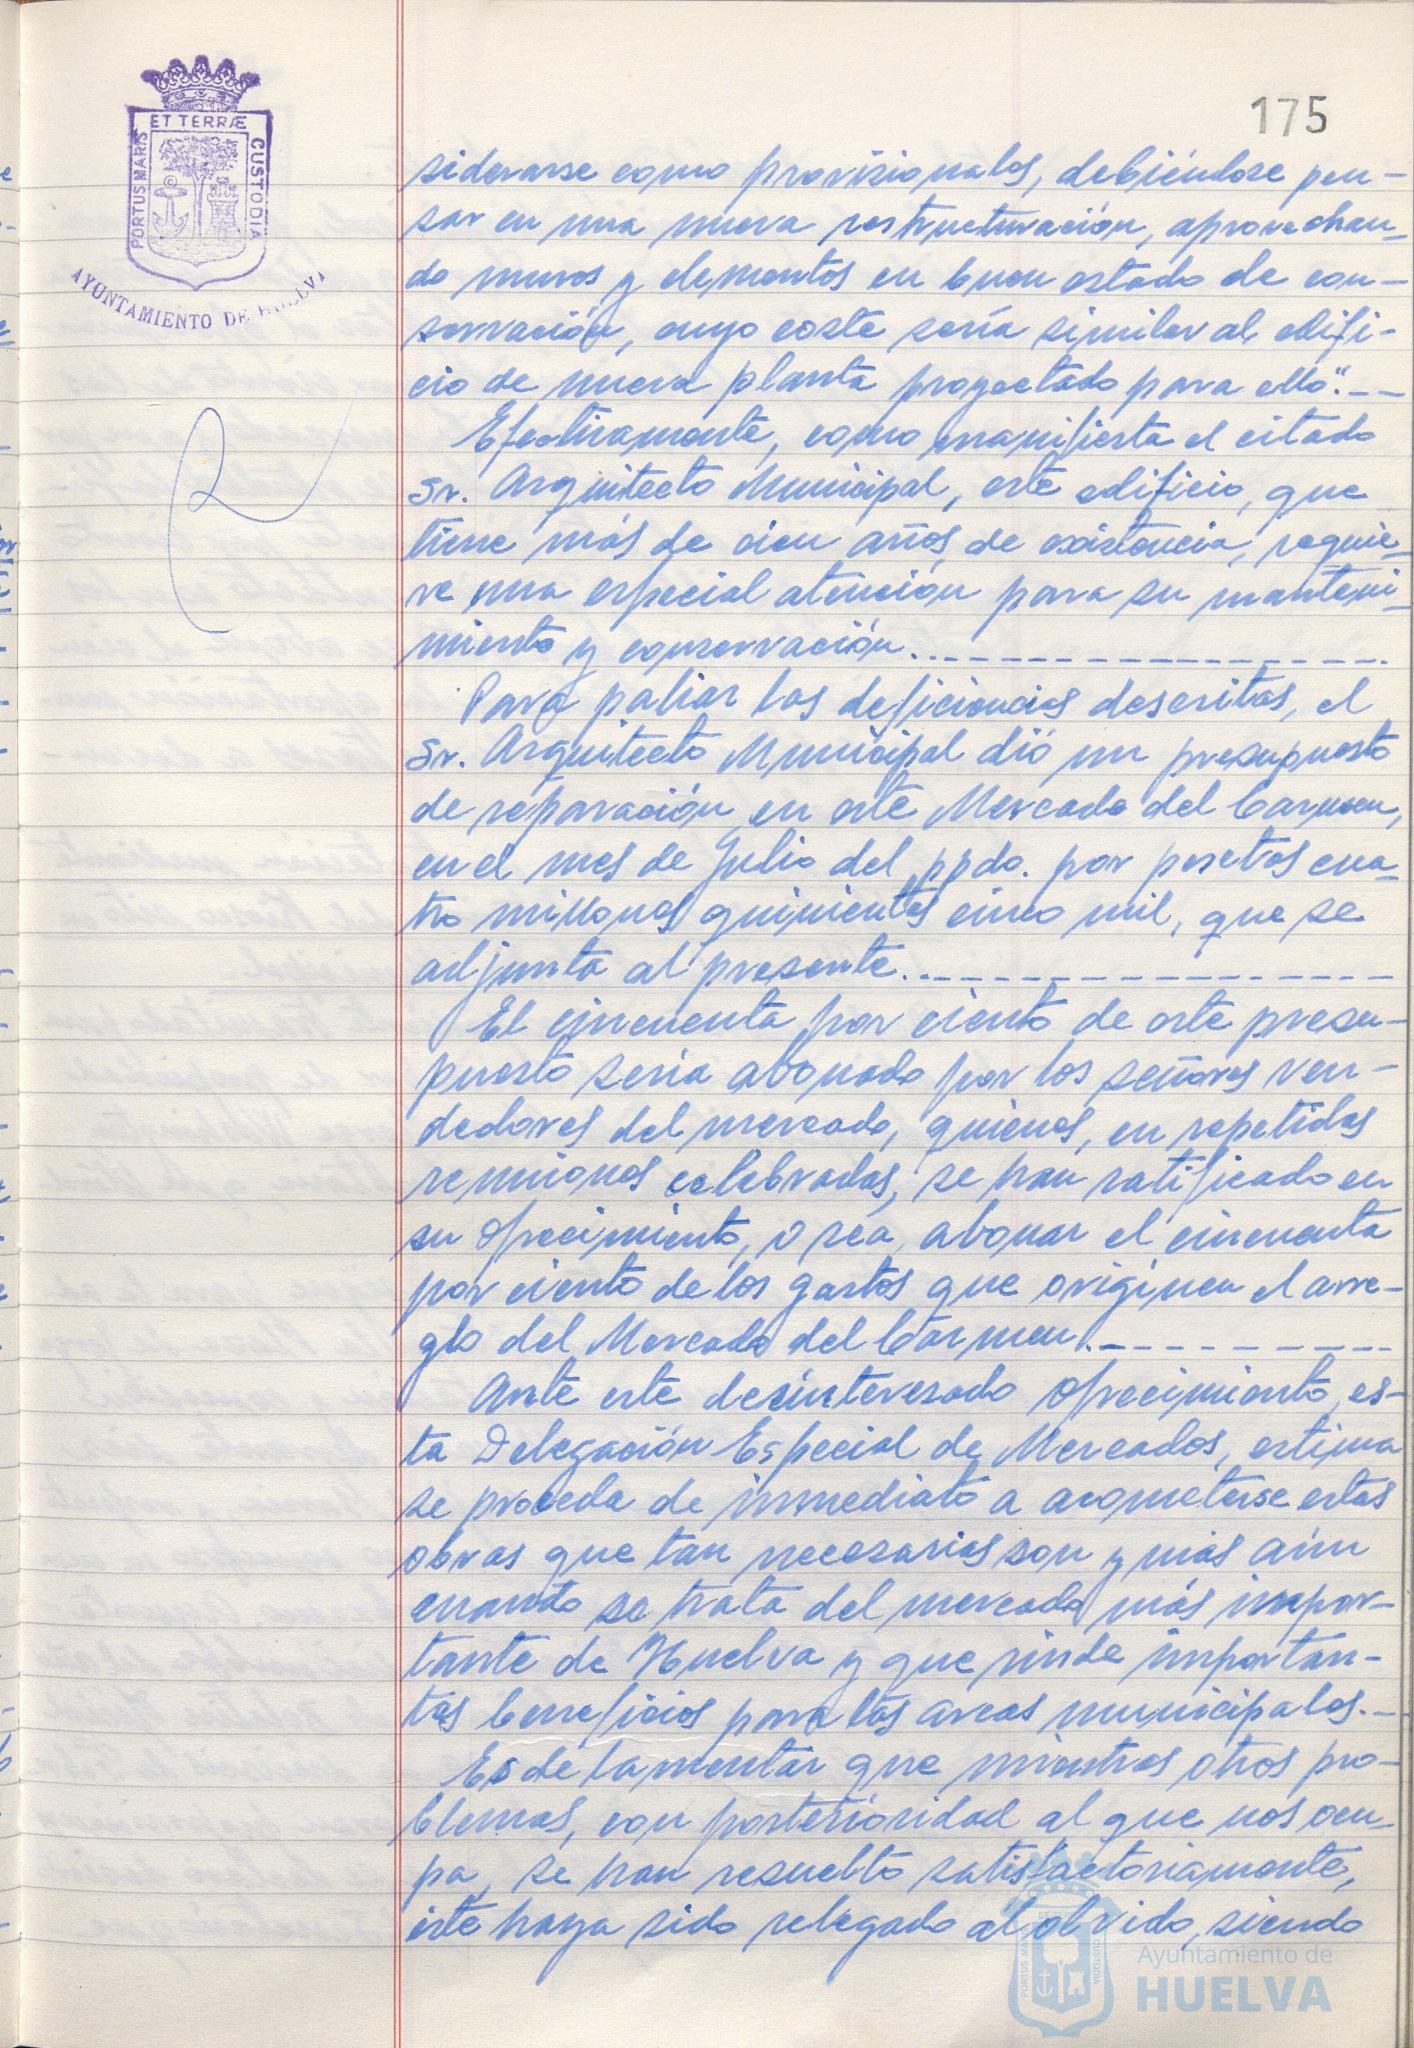 175
ET TERRÆ
PORTUS MARIS
CUSTODIA
AYUNTAMIENTO DE HUELVA
siderarse como provisionales, debiéndose pen-
sar en una nueva restructuración, aprovechan-
do muros y elementos en buen estado de con-
servación, cuyo coste sería similar al edifi-
cio de nueva planta proyectado para ello".---
Efectivamente, como manifiesta el citado
Sr. Arquitecto Municipal, este edificio, que
tiene más de cien años, de existencia, requie-
re una especial atención para su manteni-
miento y conservación.------------------
Para paliar las deficiencias descritas, el
Sr. Arquitecto Municipal dió un presupuesto
de reparación, en este Mercado del Carmen,
en el mes de Julio del ppdo. por pesetas cua-
tro millones quinientas cinco mil, que se
adjunta al presente.------------------
El cincuenta por ciento de este presu-
puesto sería abonado por los señores ven-
dedores del mercado, quienes, en repetidas
reuniones celebradas, se han ratificado en
su ofrecimiento, o sea, abonar el cincuenta
por ciento de los gastos que originen el arre-
glo del Mercado del Carmen.-----------
Ante este desinteresado ofrecimiento, es-
ta Delegación Especial de Mercados, estima
se proceda de inmediato a acometerse estas
obras que tan necesarias son y más aún
cuando se trata del mercado más impor-
tante de Huelva y que rinde importan-
tes beneficios para las arcas municipales.--
Es de lamentar que mientras otros pro-
blemas, con posterioridad al que nos ocu-
pa, se han resuelto satisfactoriamente,
éste haya sido relegado al olvido, siendo
Ayuntamiento de
HUELVA